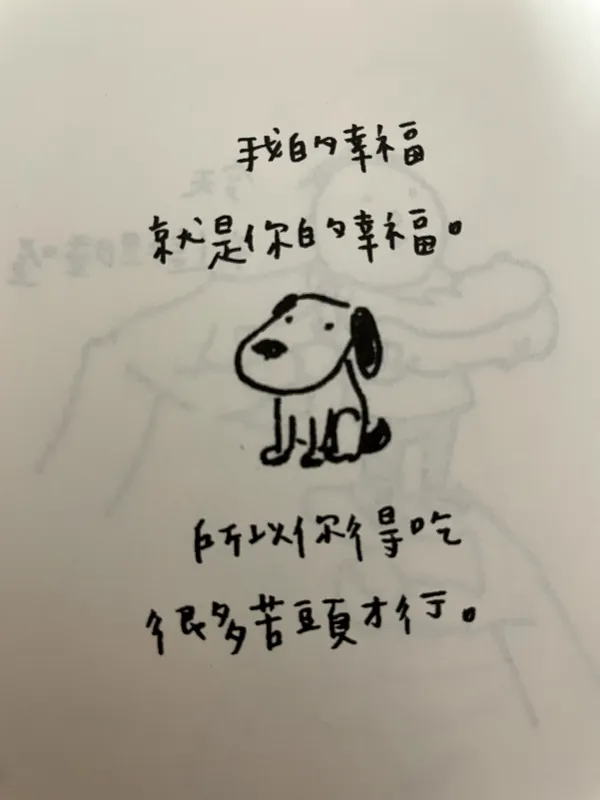 我的幸福
就是你的幸福。
所以你得吃
很多苦頭才行。